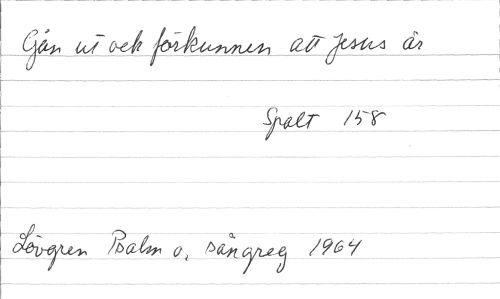 Gån ut och förkunnen att Jesus är
Spalt 158
Lövgren Psalm o. sångreg 1964